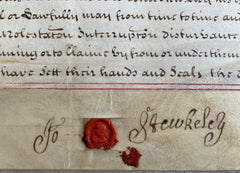 or Lawfully may from time to time and
Molestation Interruption Disturbance
aiming or to Claime by from or under them
have sett their hands and Seals the
Jo Stewkeley